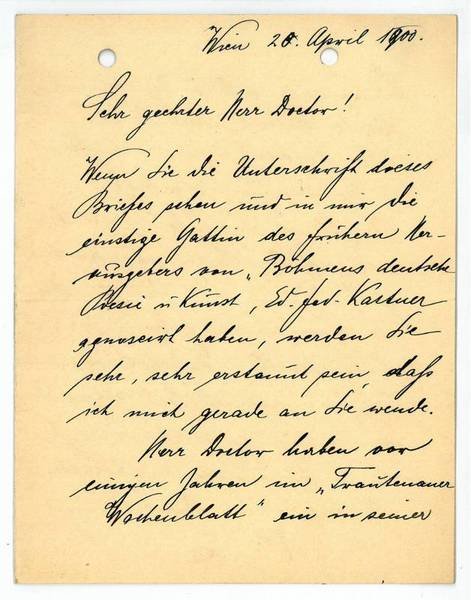 Wien 20. April 1900.
Sehr geehrter Herr Doctor!
Wenn Sie die Unterschrift dieses
Briefes sehen und in mir die
einstige Gattin des frühern Her-
ausgebers von „Böhmens deutsche
Poesie u Kunst, Ed. fed. Kastner
agnoscirt haben, werden Sie
sehr, sehr erstaunt sein, daß
ich mich gerade an Sie wende.
Herr Doctor haben vor
einigen Jahren im „Trautenauer
Wochenblatt" ein in seiner